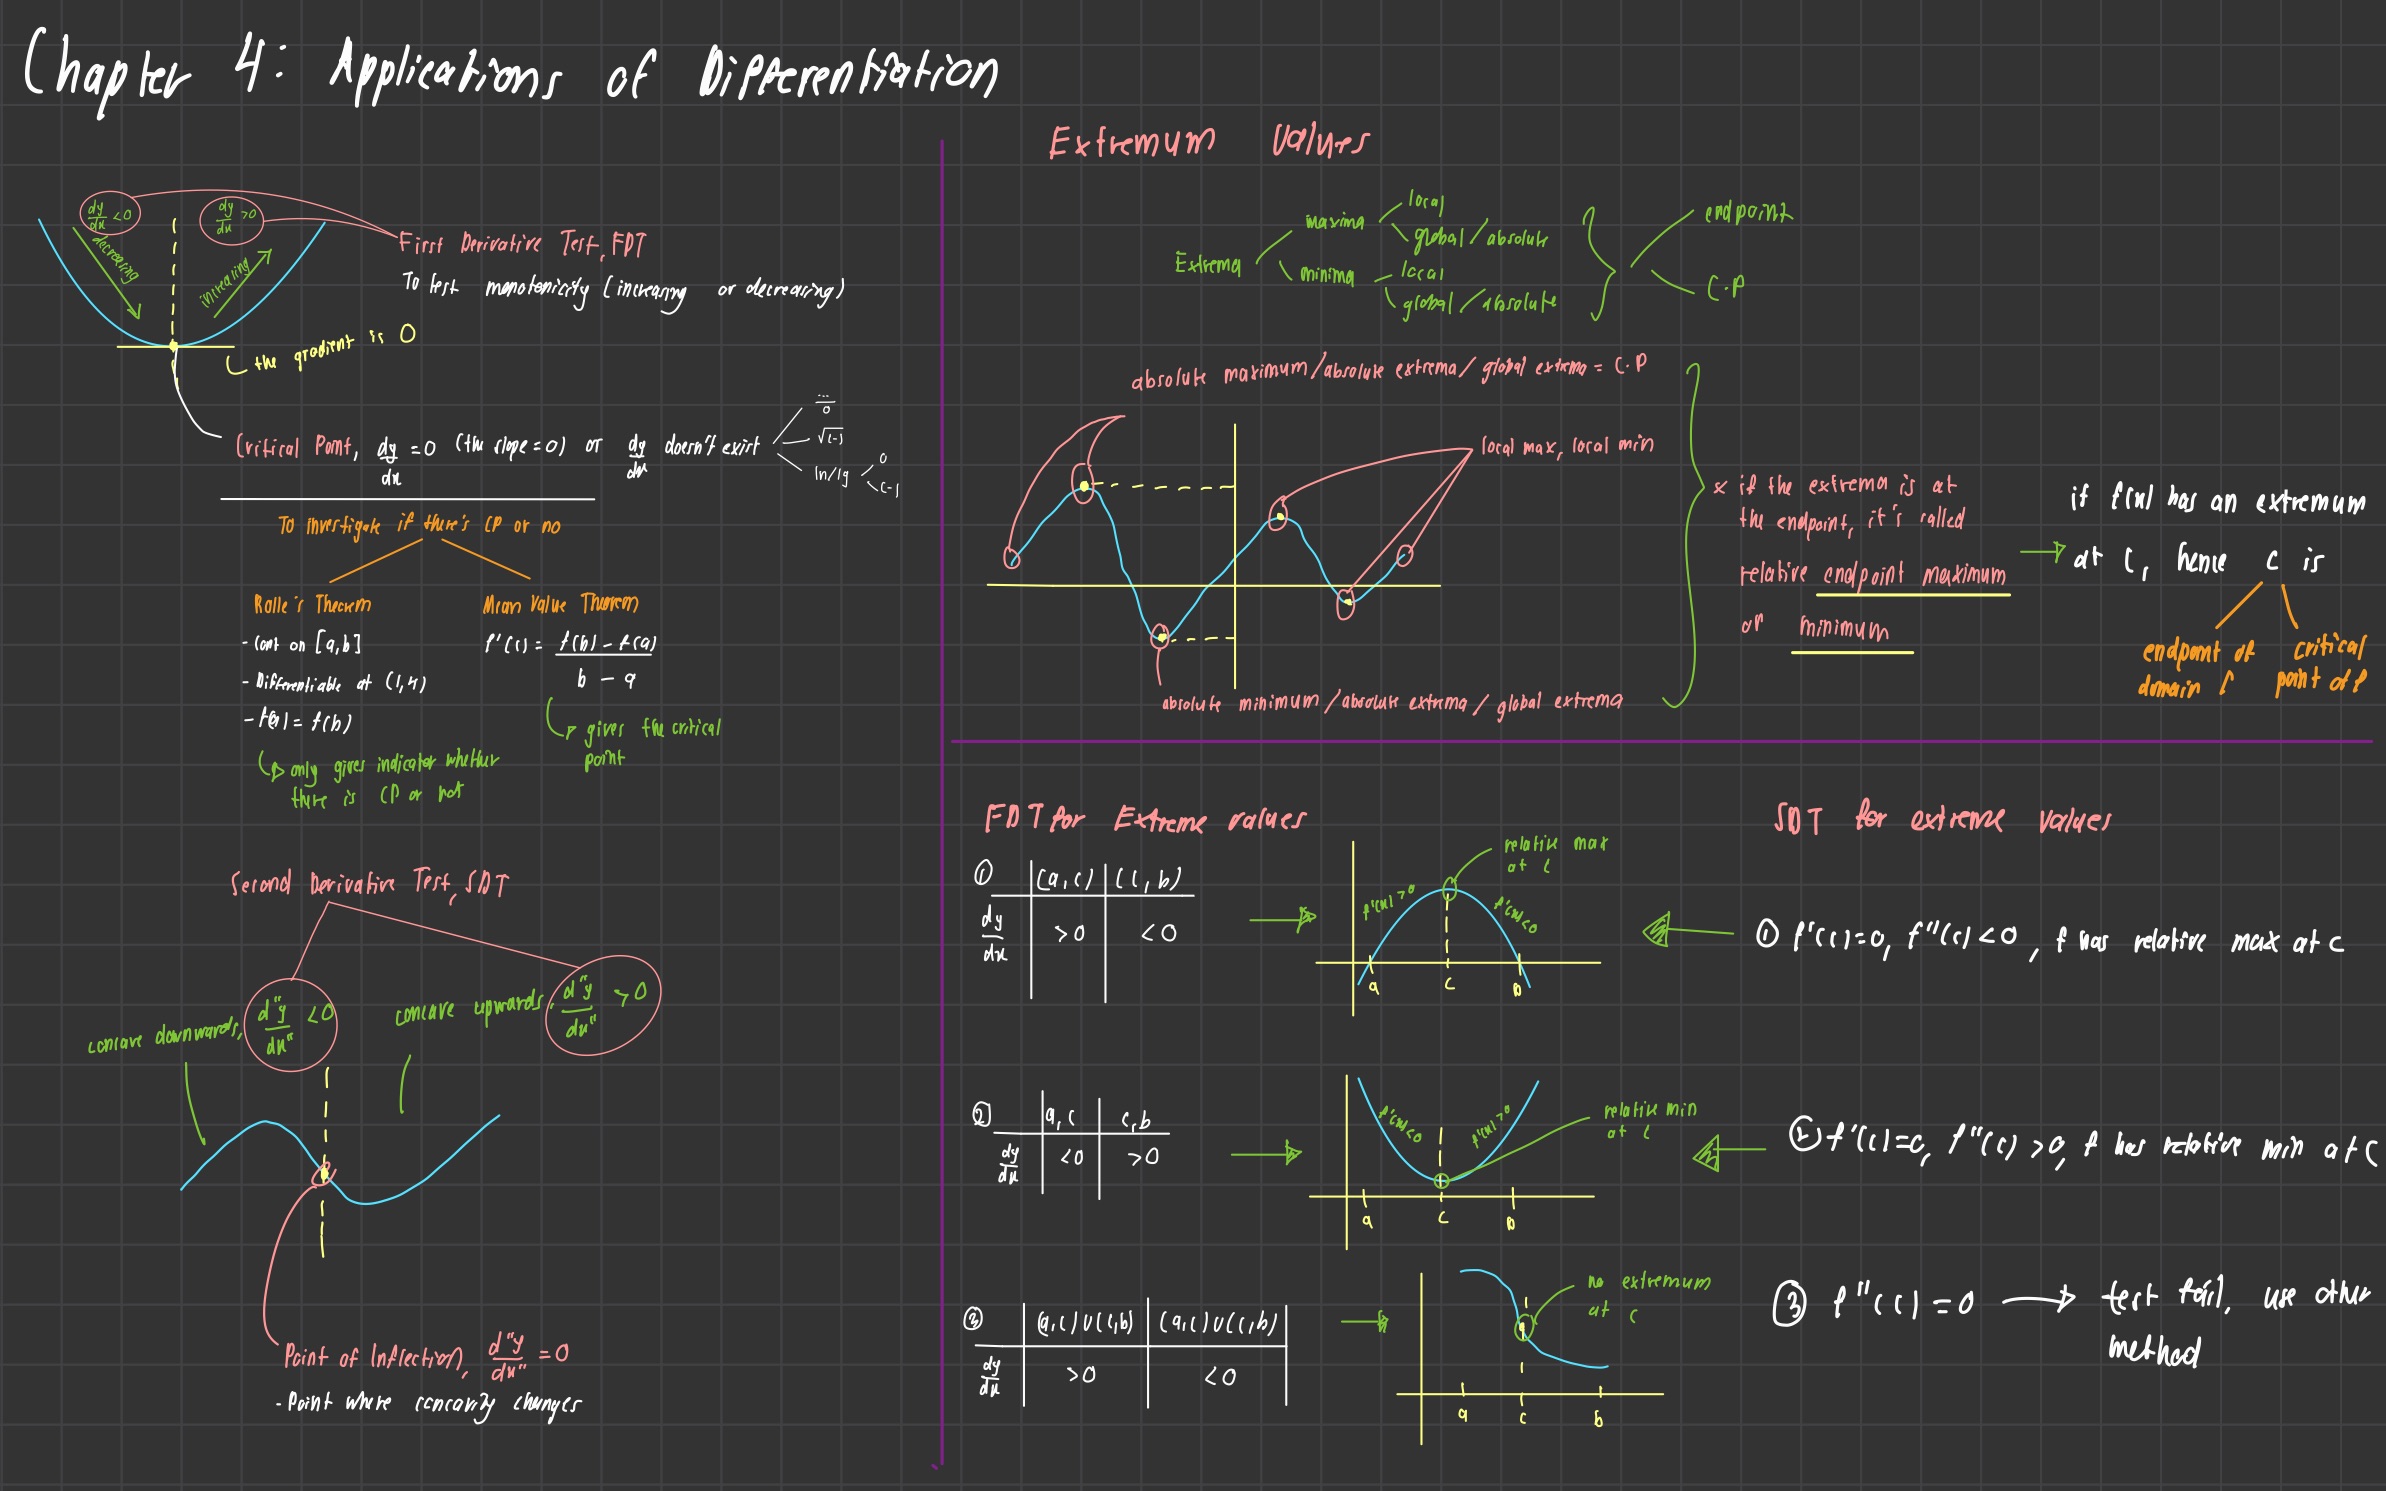 Chapter 4: Applications of Differentiation
dy/dx <0
dy/dx >0
decreasing
increasing
First Derivative Test, FDT
To test monotonicity (increasing or decreasing)
the gradient is 0
Critical Point, dy/dx = 0 (the slope = 0) or dy/dx doesn't exist
.../0
√(-)
ln/lg
0
(-)
To investigate if there's CP or no
Rolle's Theorem
- Cont on [a,b]
- Differentiable at (1,4)
- f(a) = f(b)
only gives indicator whether
there is CP or not
Mean Value Theorem
f'(c) = f(b) - f(a) / b - a
gives the critical
point
Second Derivative Test, SDT
concave downwards, d"y/dx" <0
concave upwards, d"y/dx" >0
Point of Inflection, d"y/dx" = 0
- Point where concavity changes
Extremum Values
Extrema
maxima
local
global/absolute
minima
local
global/absolute
endpoint
C.P
absolute maximum/absolute extrema/global extrema = C.P
local max, local min
absolute minimum/absolute extrema/global extrema
* if the extrema is at
the endpoint, it's called
relative endpoint maximum
or minimum
if f(x) has an extremum
at C, hence C is
endpoint of
domain f
critical
point of f
FDT for Extreme values
① (a,c) (c,b)
dy/dx >0 <0
relative max
at c
f'(x)>0
f'(x)<0
a c b
② a,c c,b
dy/dx <0 >0
f'(x)<0
f'(x)>0
relative min
at c
a c b
③ (a,c)U(c,b) (a,c)U(c,b)
dy/dx >0 <0
no extremum
at c
a c b
SDT for extreme values
① f'(c)=0, f"(c)<0, f has relative max at c
② f'(c)=0, f"(c)>0, f has relative min at c
③ f"(c)=0 test fail, use other
method